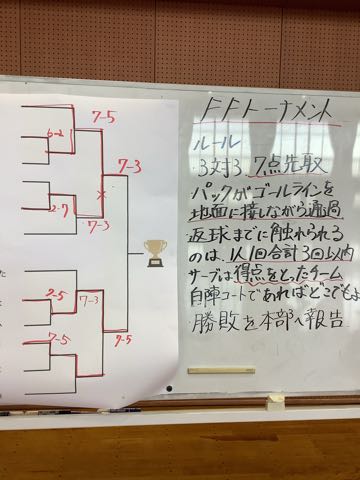 7-5
6-2
7-3
2-7
7-3
2-5
7-3
7-5
7-5
FFトーナメント
ルール
・3対3 7点先取
パックがゴールラインを
地面に接しながら通過
返球までに触れられる
のは、1人1回合計3回以内
サーブは得点をとったチーム
自陣コートであればどこでもよ
勝敗を本部へ報告